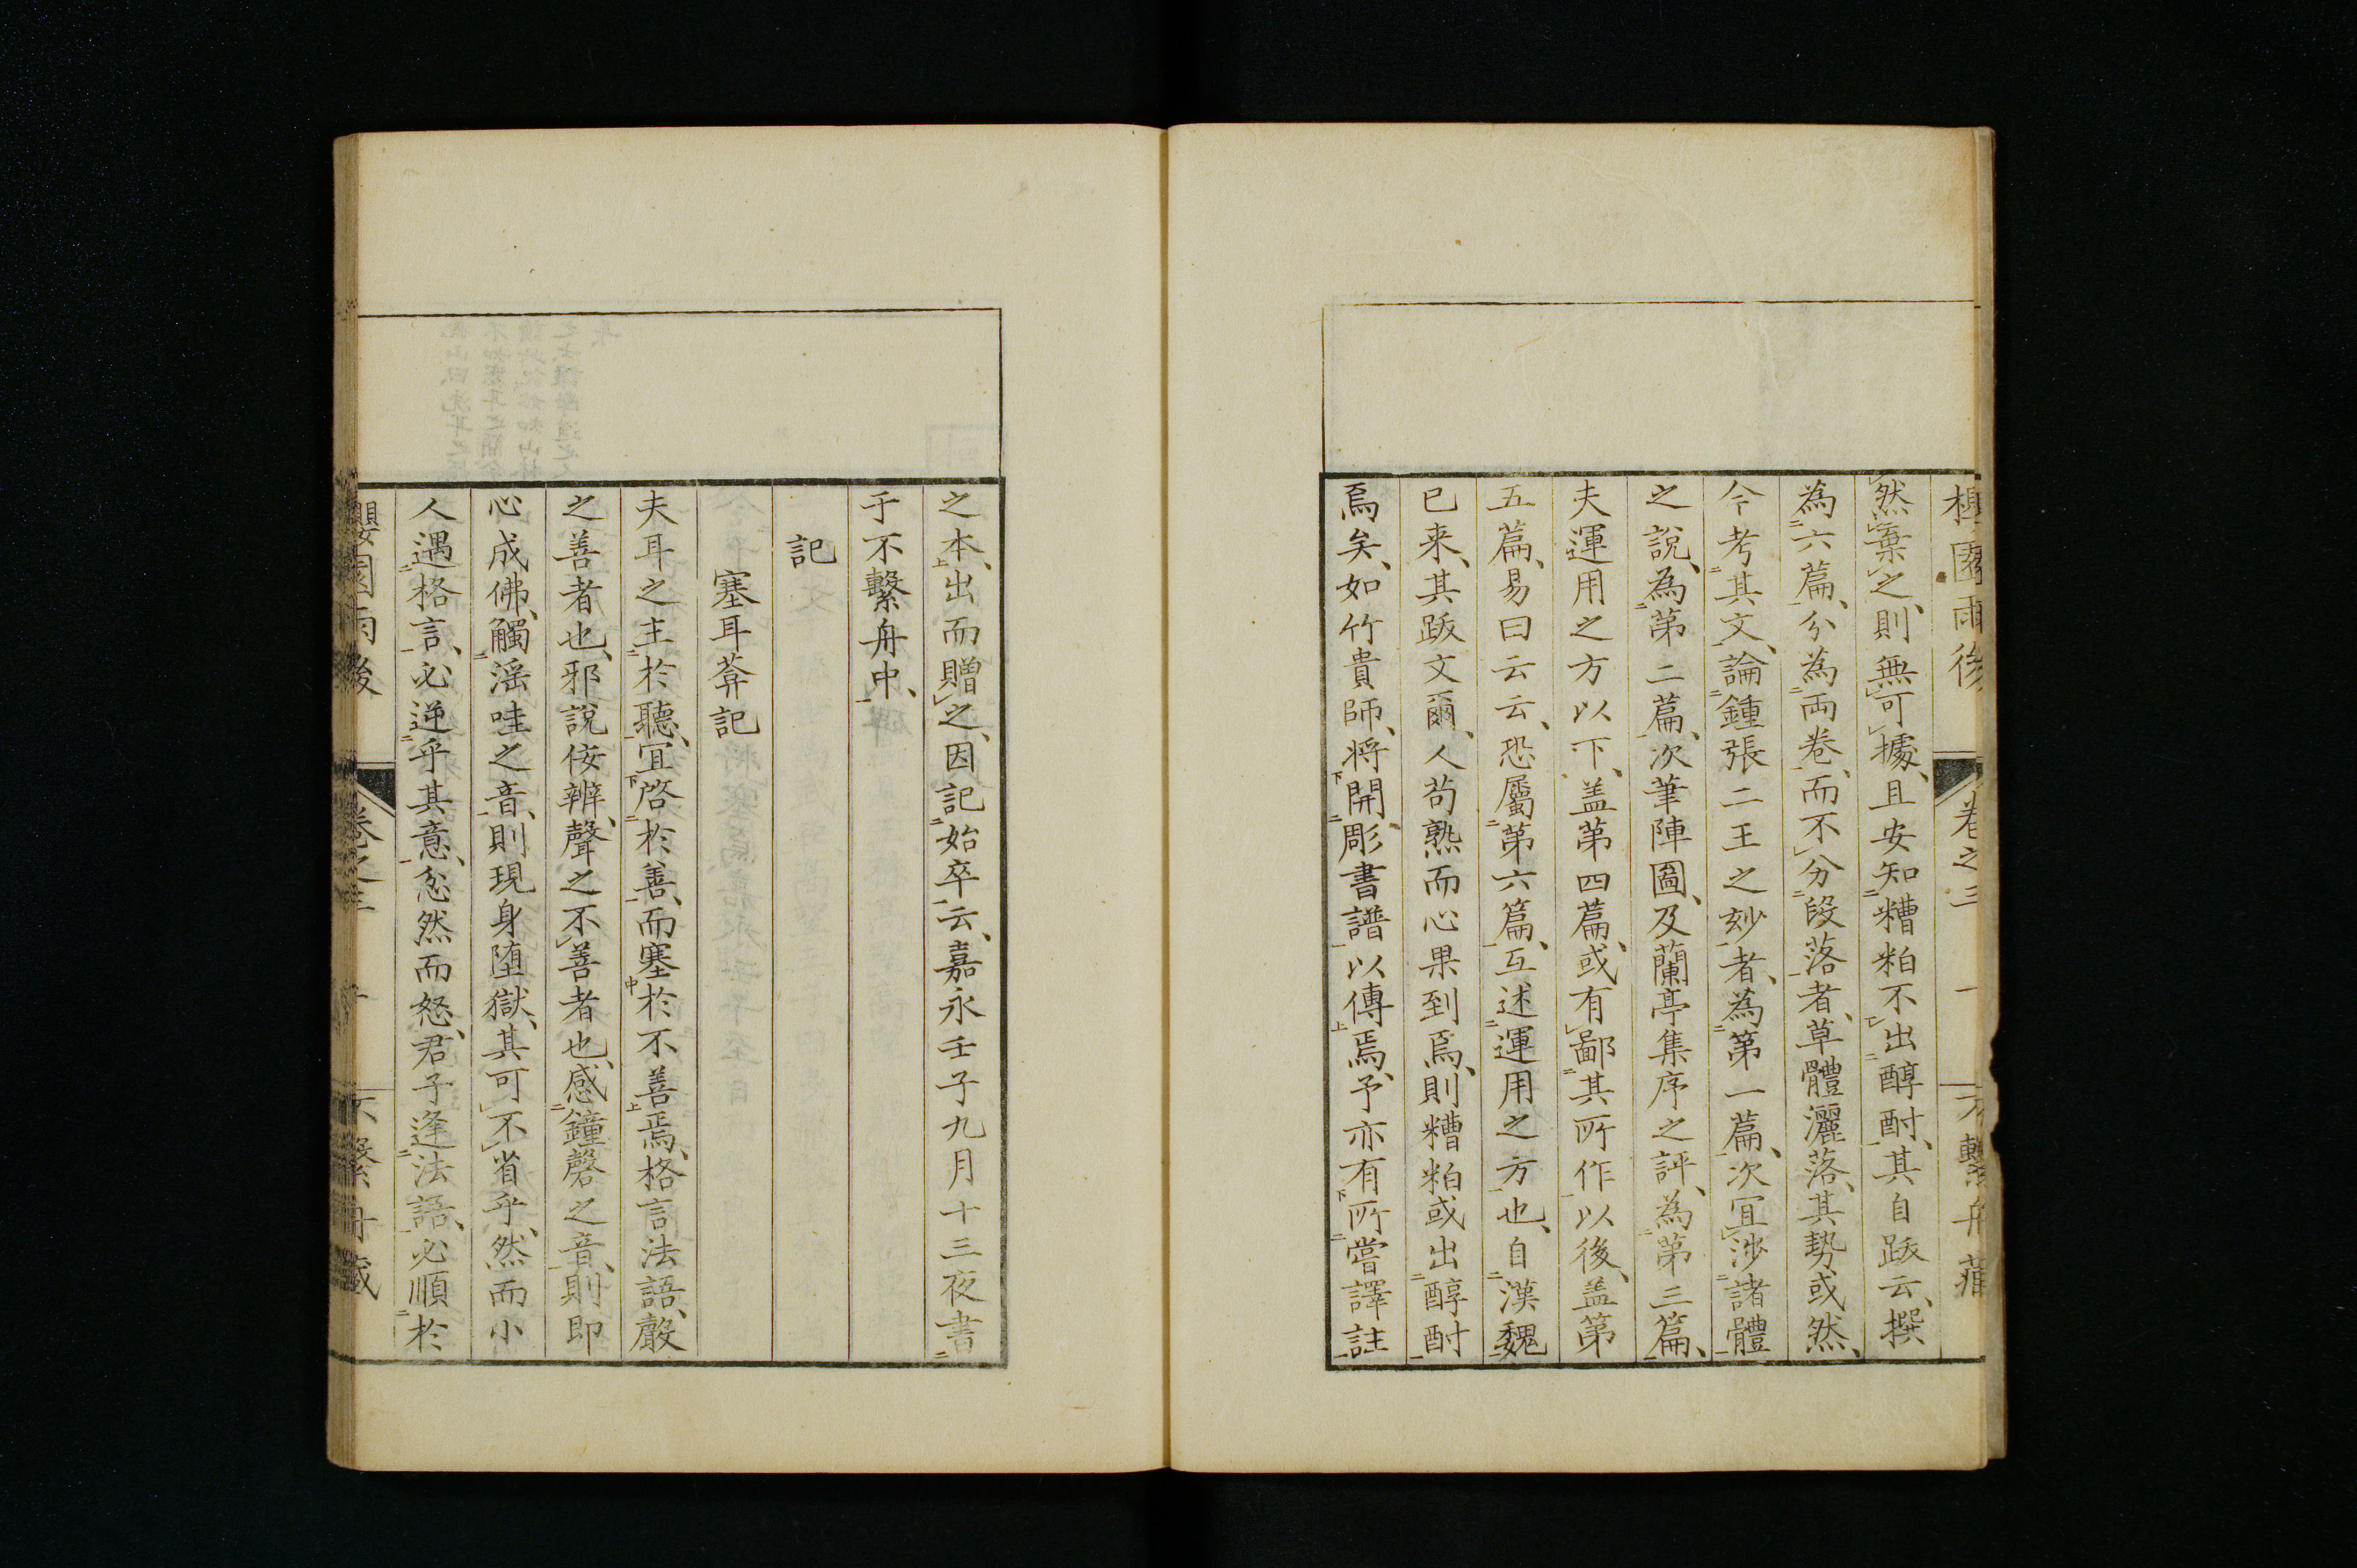 然棄之、則無可據、且安知糟粕不出醇酎、其自跋云、撰
為六篇、分為両卷、而不分段落者、草體灑落、其勢或然、
今考其文、論鍾張二王之玅者、為第一篇、次冝渉諸體
之說、為第二篇、次筆陣圖、及蘭亭集序之評、為第三篇、
夫運用之方以下、盖第四篇、或有鄙其所作以後、盖第
五篇、易曰云云、恐屬第六篇、互述運用之方也、自漢魏
已来、其跋文爾、人苟熟而心果到焉、則糟粕或出醇酎
焉矣、如竹貴師、将開彫書譜以傳焉、予亦有所嘗譯註
之本、出而贈之、因記始卒云、嘉永壬子九月十三夜書
于不繫舟中、
記
塞耳葬記
夫耳之主於聽、冝啓於善、而塞於不善焉、格言法語、聲
之善者也、邪說侫辨、聲之不善者也、感鐘磬之音、則即
心成佛、觸滛哇之音、則現身堕獄、其可不省乎、然而小
人遇格言、必逆乎其意、忿然而怒、君子逢法語、必順於
園雨後 卷之三